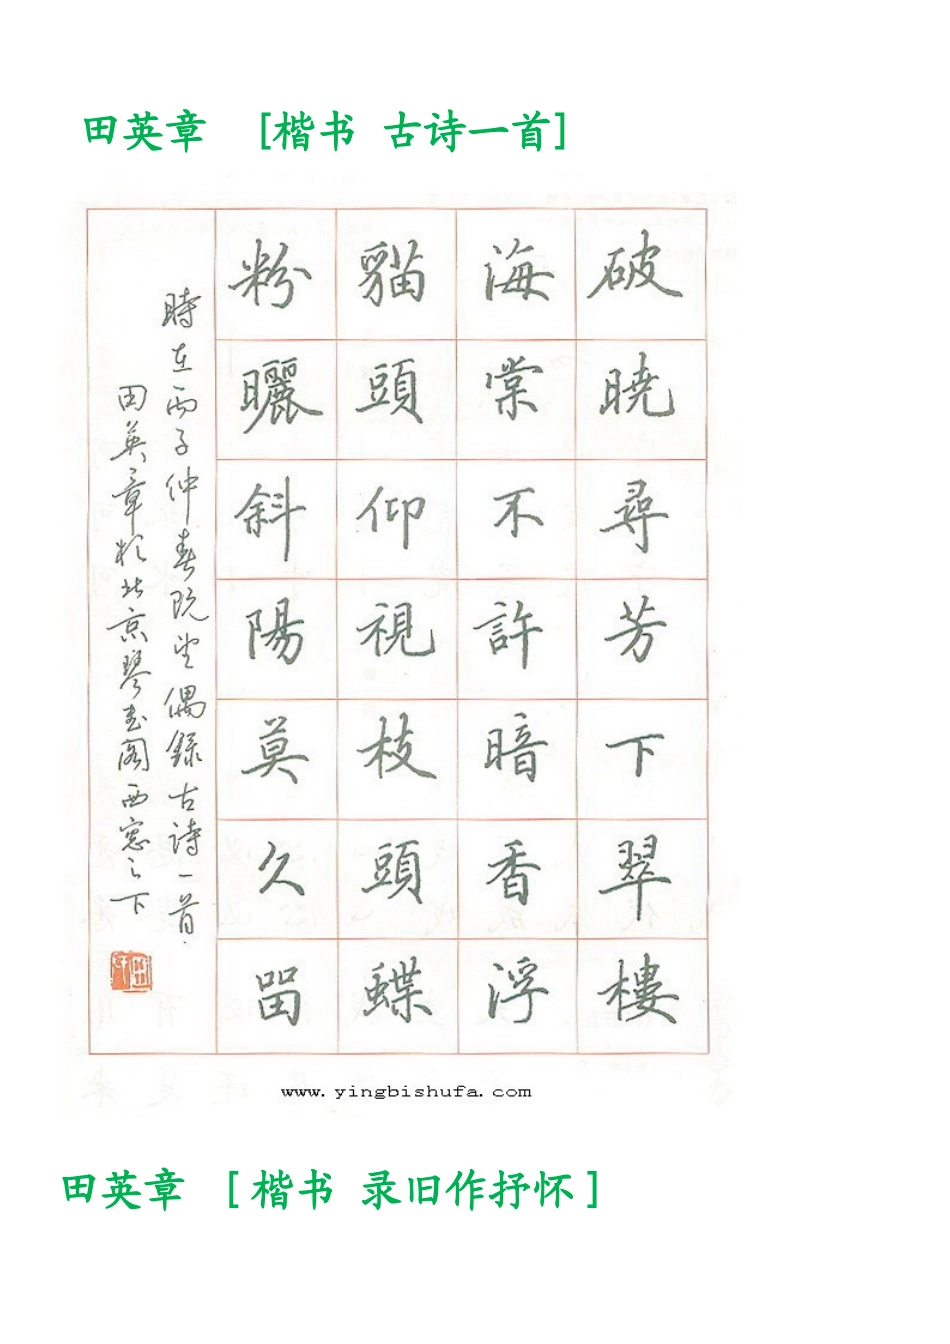 田英章 [楷书 古诗一首]
破曉尋芳下翠樓
海棠不許暗香浮
貓頭仰視枝頭蝶
粉曬斜陽莫久留
時在丙子仲春既望偶錄古詩一首
田英章於北京琴書閣西窓之下
www.yingbishufa.com
田英章 [楷书 录旧作抒怀]